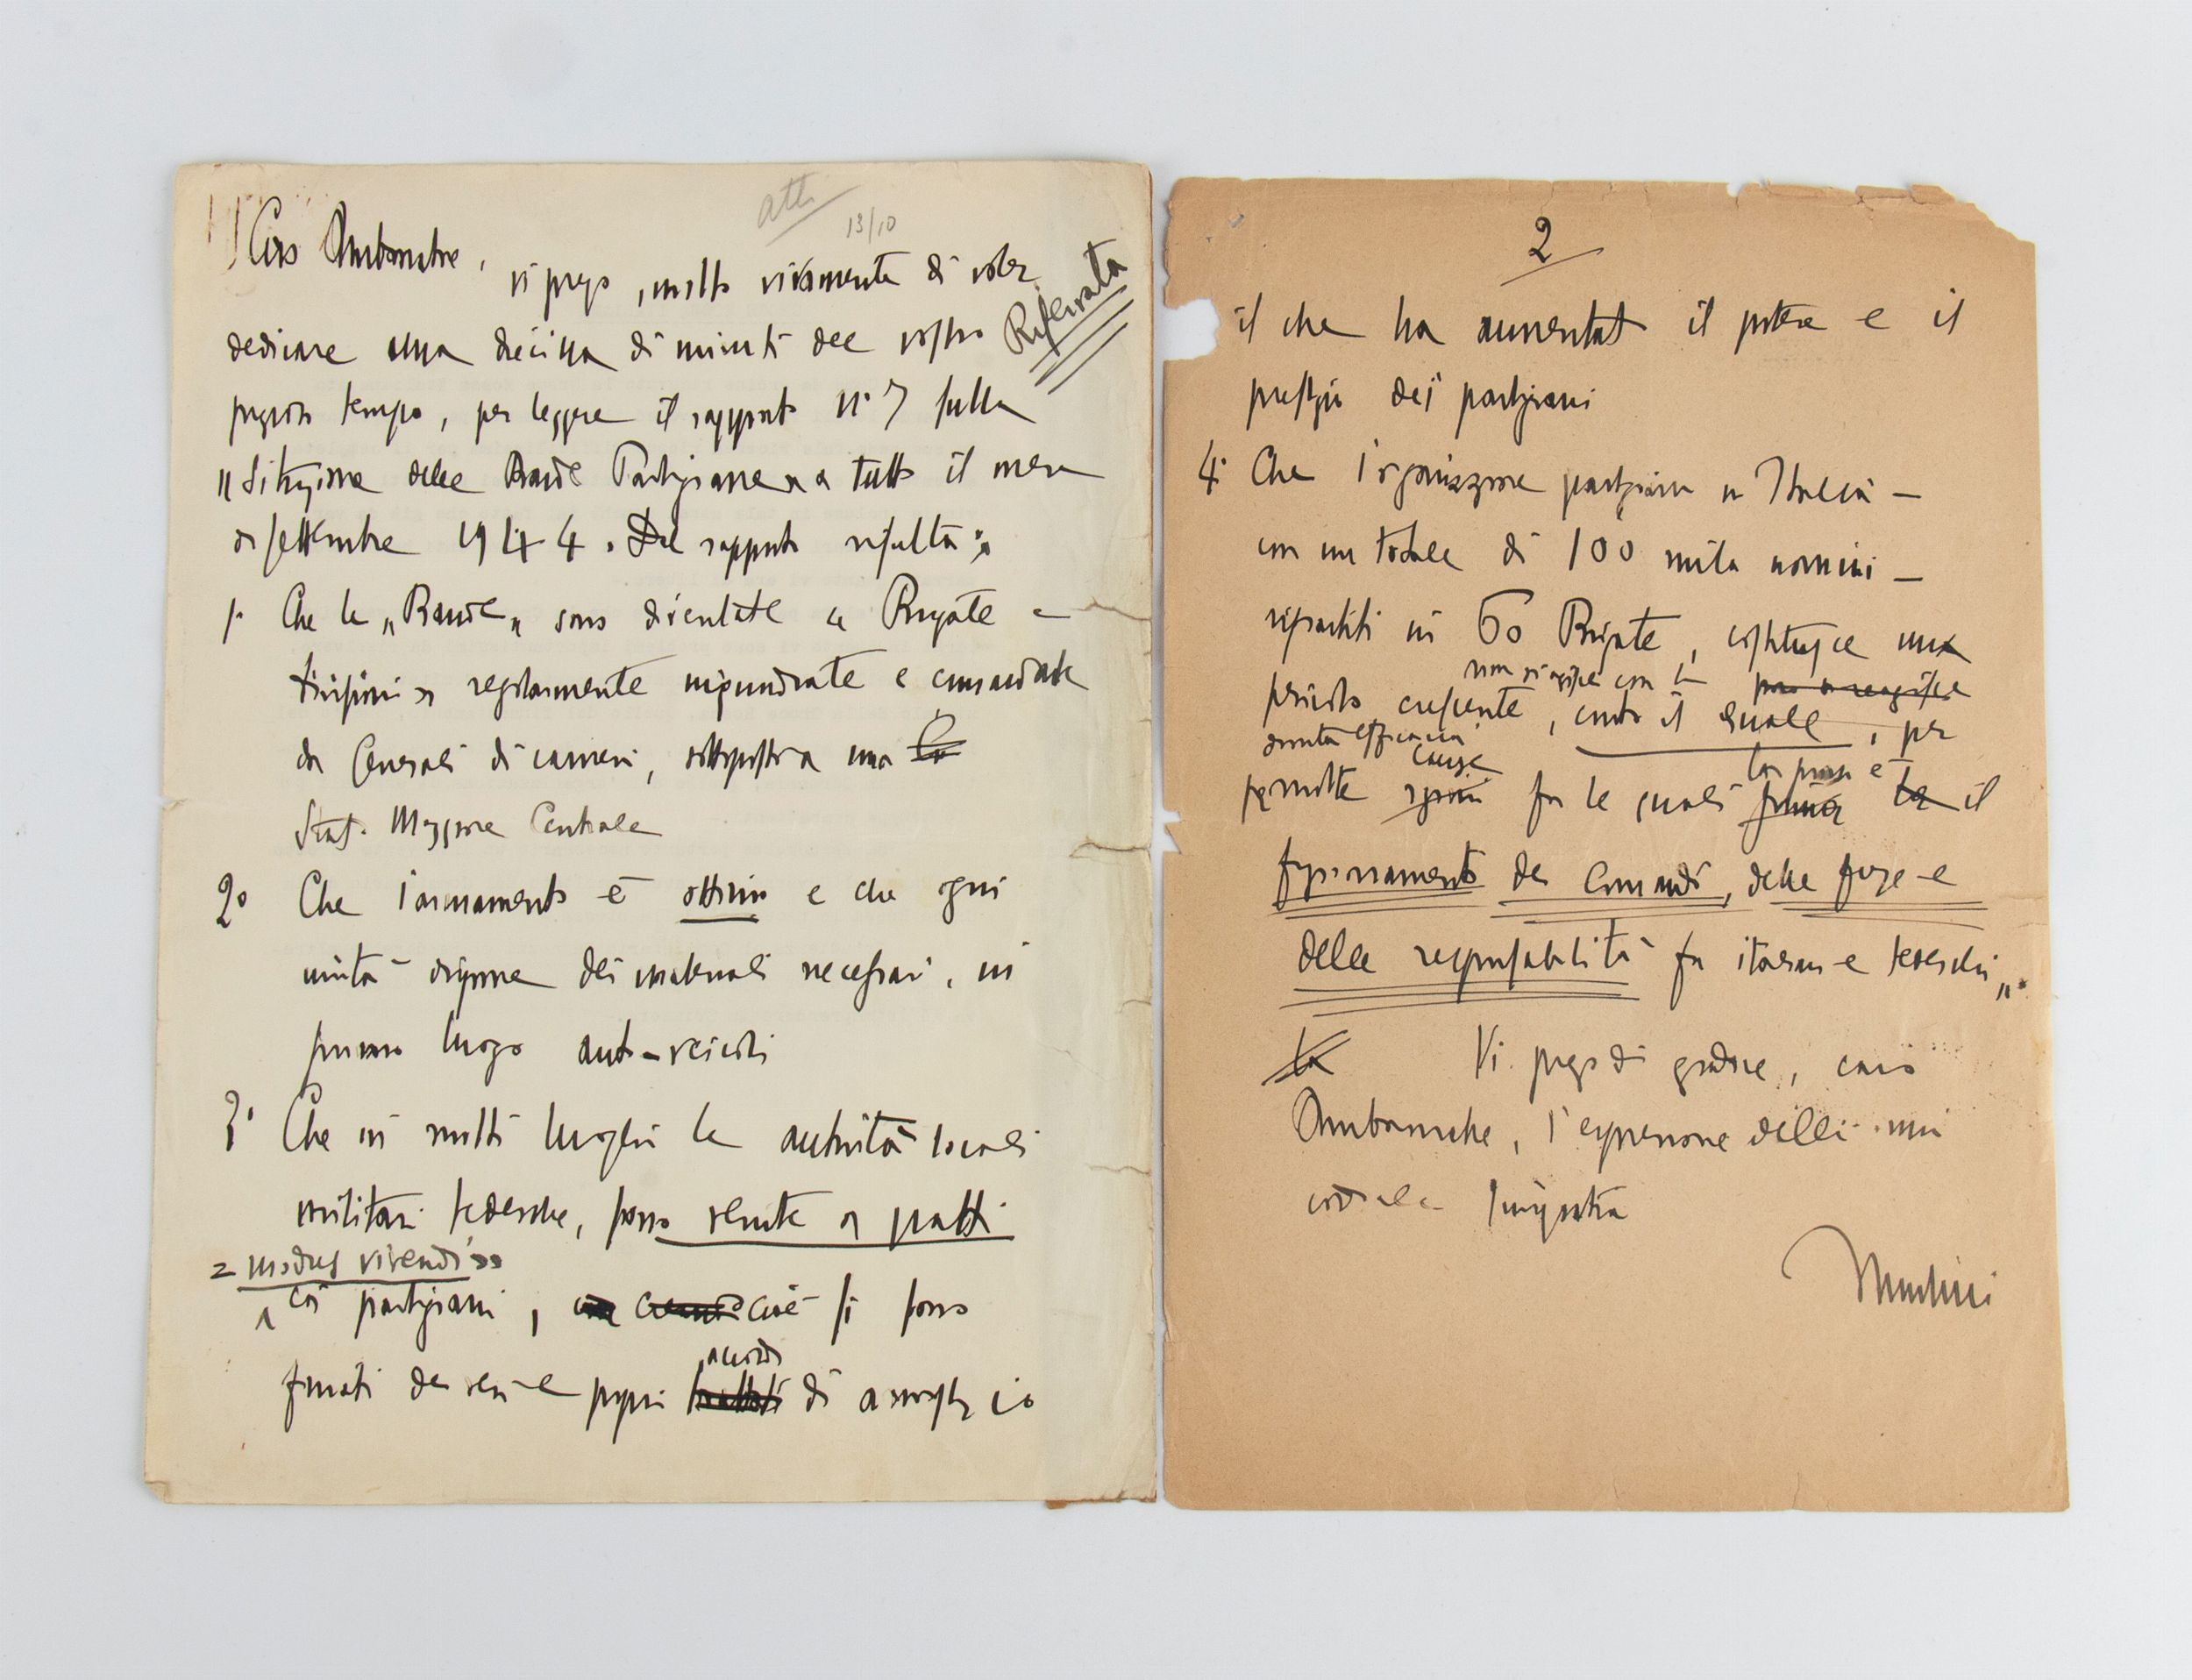 atti
13/10
Caro Ambasciatore,
vi prego, molto vivamente di voler
Riservata
dedicare una decina di minuti del vostro
prezioso tempo, per leggere il rapporto N° 7 sulla
"Situazione delle Bande Partigiane" a tutto il mese
di settembre 1944. Dal rapporto risulta:
1° Che le "Bande" sono diventate " Brigate e
divisioni" regolarmente inquadrate e comandate
da Generali di carriera, sottoposti a uno
Stato Maggiore Centrale
2° Che l'armamento è ottimo e che ogni
unità dispone dei materiali necessari, in
primo luogo auto-veicoli
3° Che in molti luoghi le autorità locali
militari tedesche, sono venute a patti
= modus vivendi"
coi partigiani, cioè si sono
accordi
firmati dei veri e propri trattati di armistizio
2
il che ha aumentato il potere e il
prestigio dei partigiani
4° Che l'organizzazione partigiana in Italia –
con un totale di 100 mila uomini –
ripartiti in 60 Brigate, costituisce un
non si agisce con la poco si reagisce
pericolo crescente, contro il quale, per
dovuta efficacia
cause
la prima è
per molte ragioni fra le quali prima la il
frazionamento dei Comandi, delle forze e
delle responsabilità fra italiani e tedeschi".
La Vi prego di gradire, caro
Ambasciatore, l'espressione della mia
cordiale simpatia
Mussolini